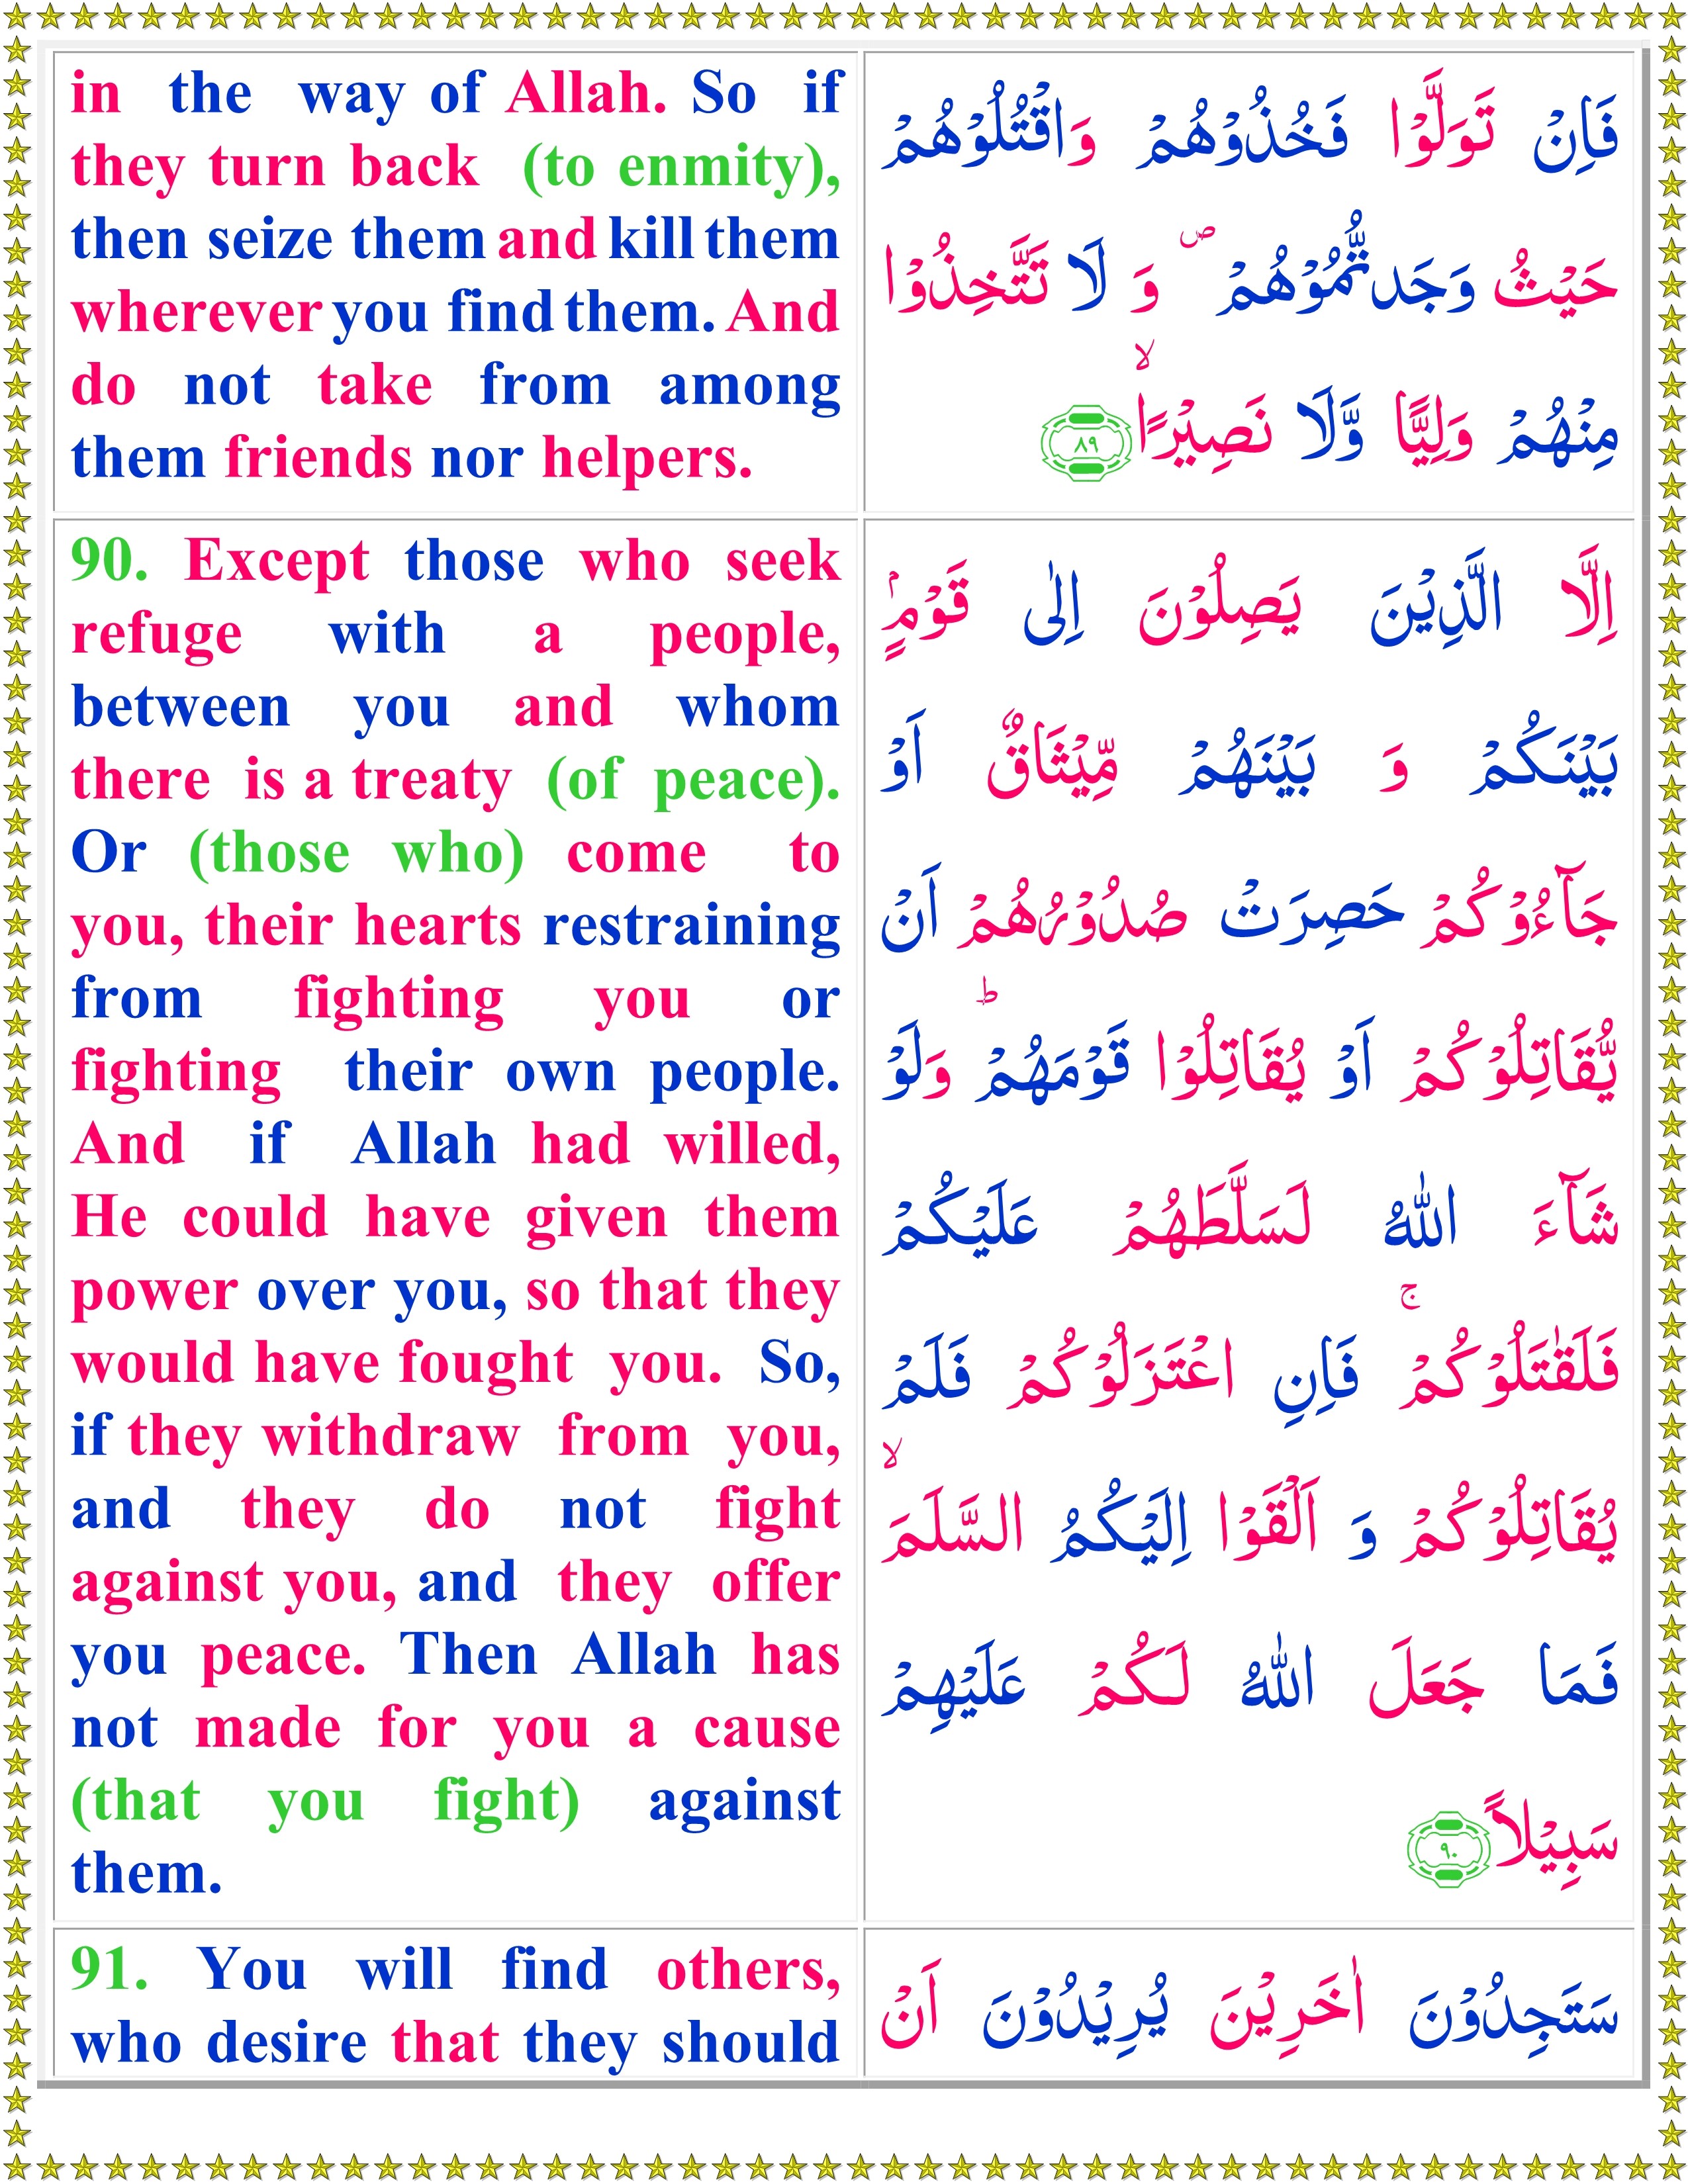 in the way of Allah. So if
they turn back (to enmity),
then seize them and kill them
wherever you find them. And
do not take from among
them friends nor helpers.
فَاِنْ تَوَلَّوْا فَخُذُوْهُمْ وَاقْتُلُوْهُمْ
حَيْثُ وَجَدتُّمُوْهُمْ ۖ وَ لَا تَتَّخِذُوْا
مِنْهُمْ وَلِيًّا وَّلَا نَصِيْرًا ۙ ﴿۸۹﴾
90. Except those who seek
refuge with a people,
between you and whom
there is a treaty (of peace).
Or (those who) come to
you, their hearts restraining
from fighting you or
fighting their own people.
And if Allah had willed,
He could have given them
power over you, so that they
would have fought you. So,
if they withdraw from you,
and they do not fight
against you, and they offer
you peace. Then Allah has
not made for you a cause
(that you fight) against
them.
اِلَّا الَّذِيْنَ يَصِلُوْنَ اِلٰى قَوْمٍۭ
بَيْنَكُمْ وَ بَيْنَهُمْ مِّيْثَاقٌ اَوْ
جَآءُوْكُمْ حَصِرَتْ صُدُوْرُهُمْ اَنْ
يُّقَاتِلُوْكُمْ اَوْ يُقَاتِلُوْا قَوْمَهُمْ ؕ وَلَوْ
شَآءَ اللّٰهُ لَسَلَّطَهُمْ عَلَيْكُمْ
فَلَقٰتَلُوْكُمْ ۚ فَاِنِ اعْتَزَلُوْكُمْ فَلَمْ
يُقَاتِلُوْكُمْ وَ اَلْقَوْا اِلَيْكُمُ السَّلَمَ ۙ
فَمَا جَعَلَ اللّٰهُ لَكُمْ عَلَيْهِمْ
سَبِيْلاً ﴿۹۰﴾
91. You will find others,
who desire that they should
سَتَجِدُوْنَ اٰخَرِيْنَ يُرِيْدُوْنَ اَنْ